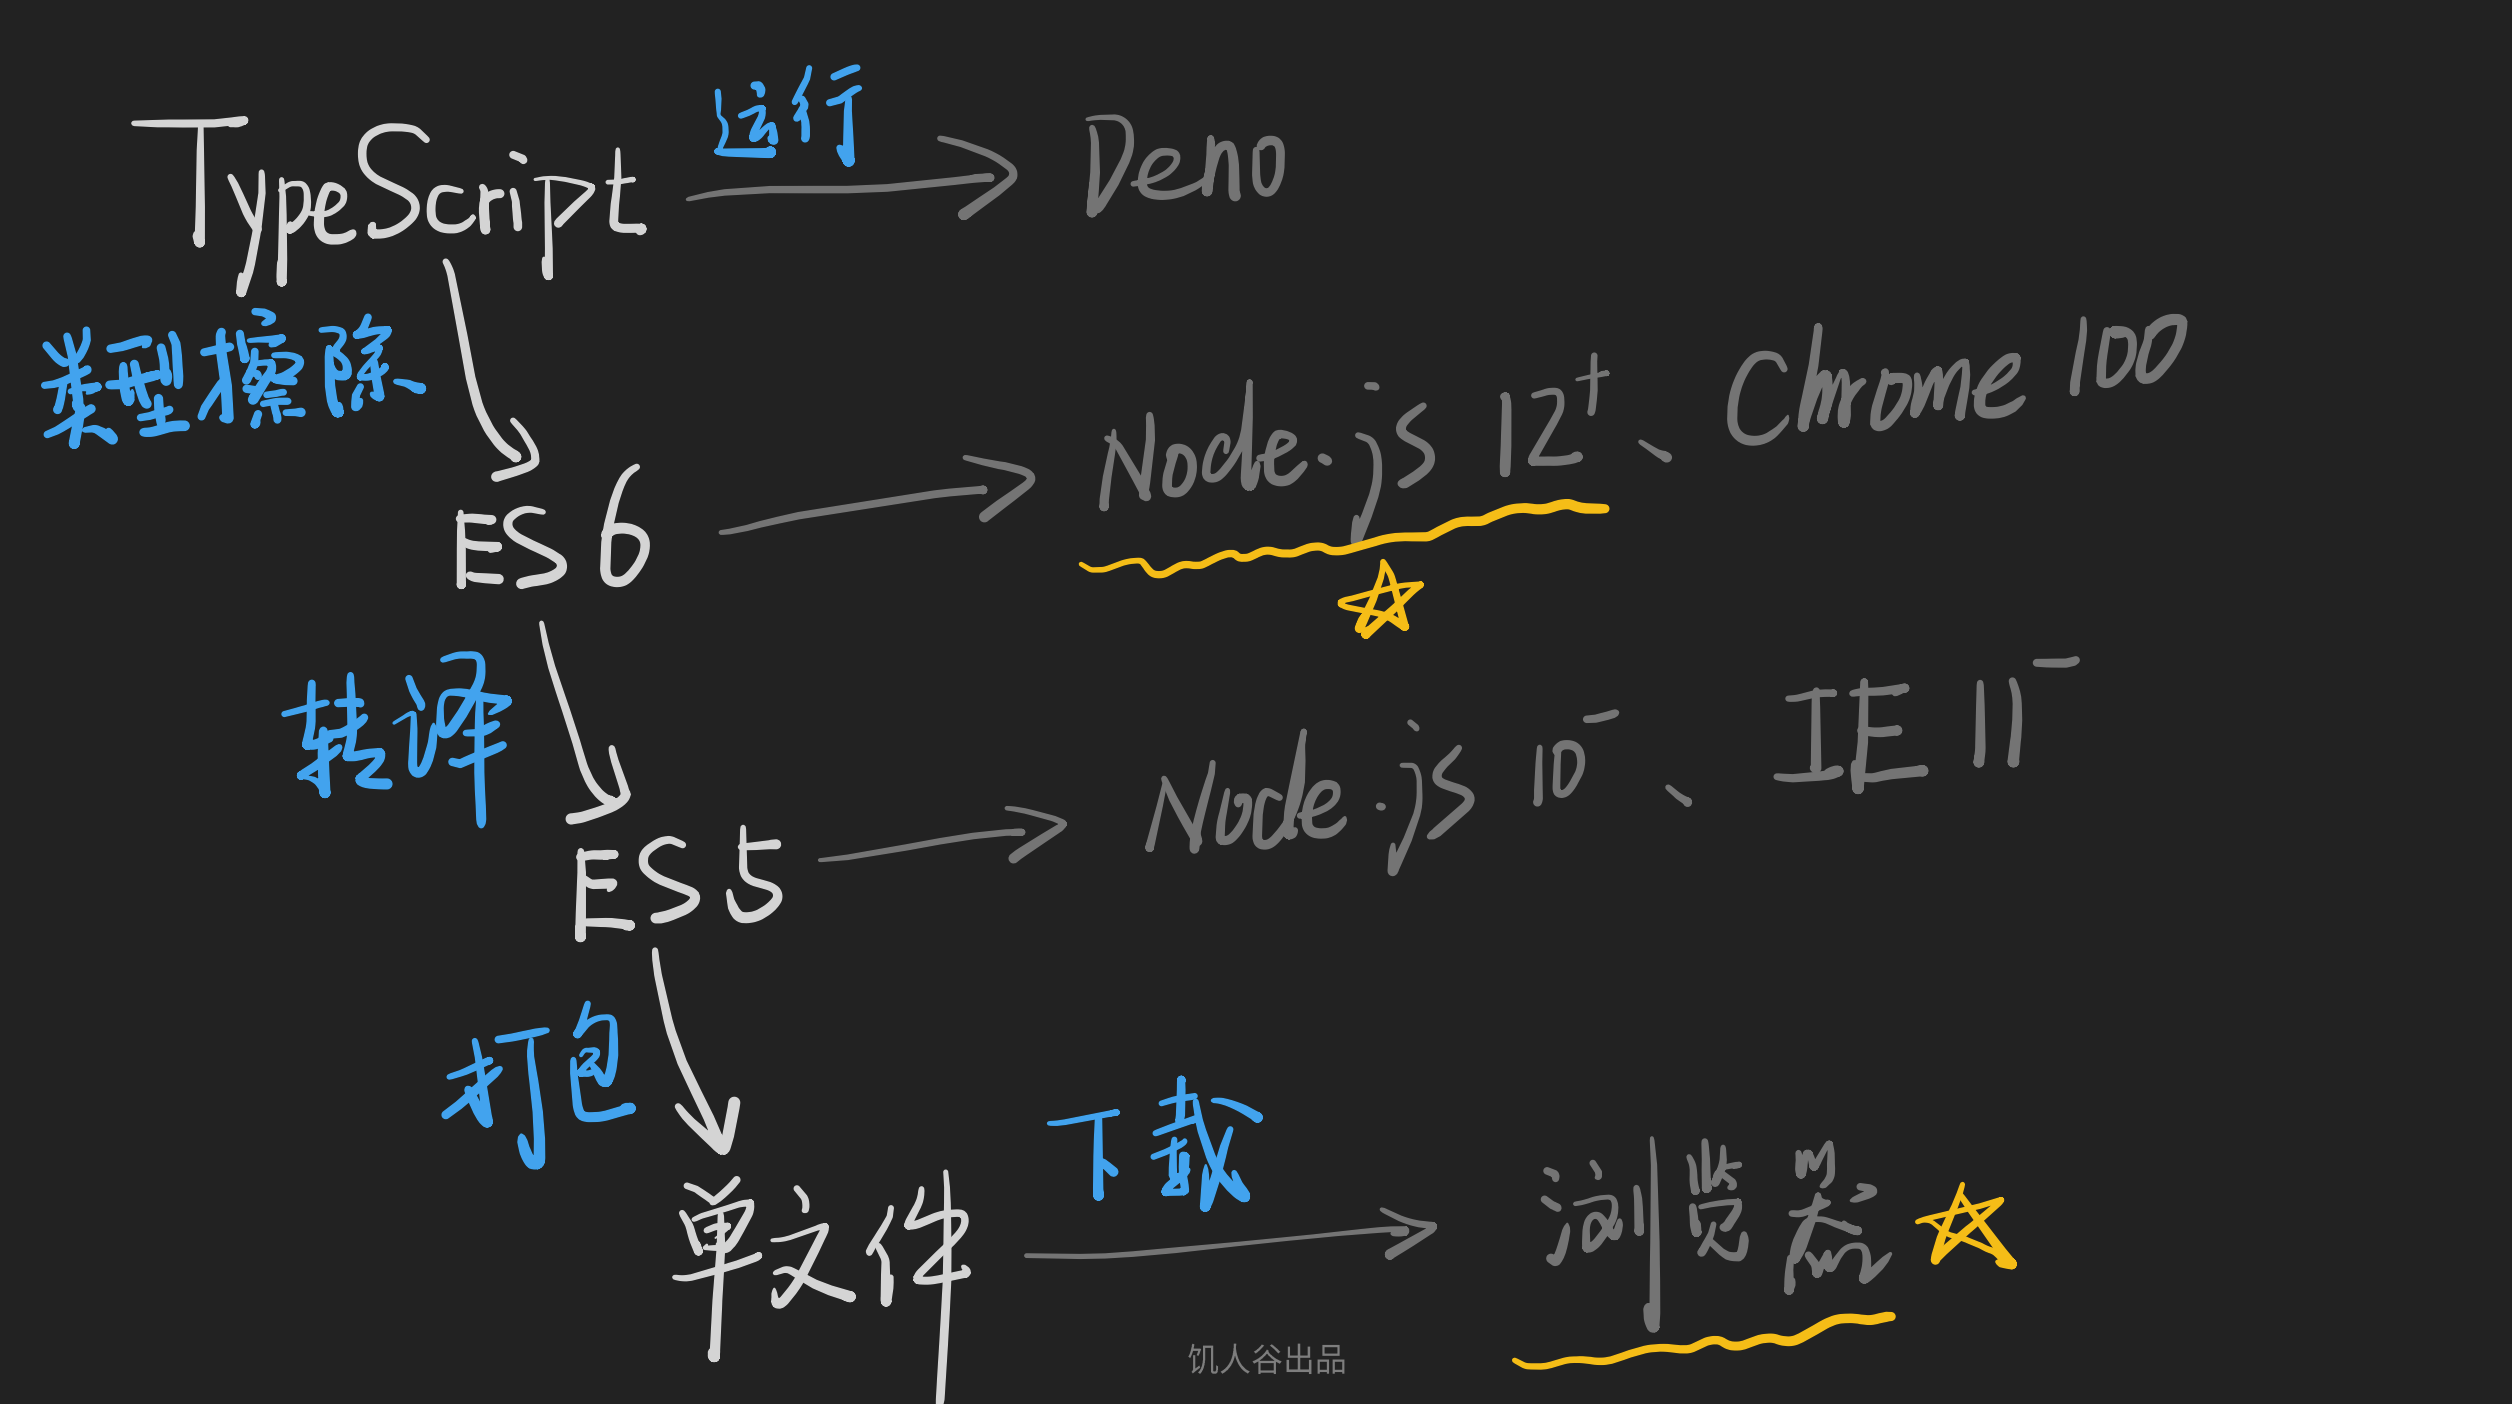 TypeScript 运行 Deno
类型擦除、
ES 6 Node.js 12+、Chrome 100
转译
ES 5 Node.js 10-、IE 11-
打包
单文件 下载 浏览器
饥人谷出品